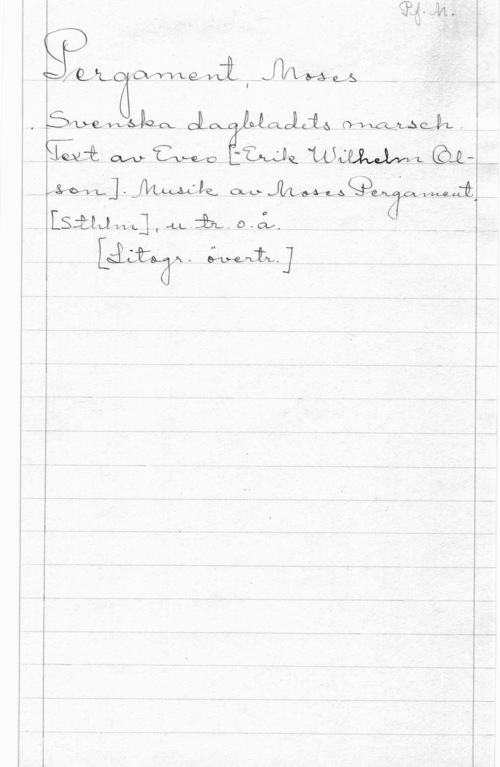 Pf. M.
Pergament, Moses
Svenska dagbladets marsch.
Text av Eveo [=Erik Wilhelm Ol-
son]. Musik av Moses Pergament,
[Sthlm], u. tr. o. å.
[Litogr. övertr.]